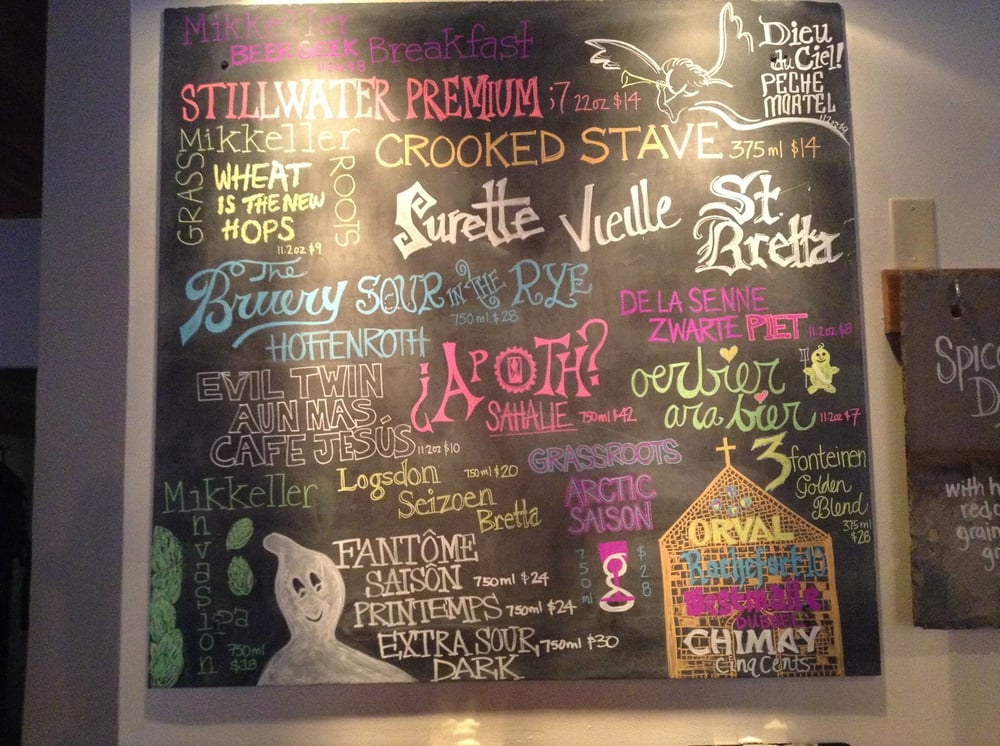 Mikkeller
BEER GEEK Breakfast
Dieu
du Ciel!
PECHE
MORTEL
11.2oz $9
STILLWATER PREMIUM ;7 22oz $14
Mikkeller
GRASS
ROOTS
WHEAT
IS THE NEW
HOPS
11.2oz $9
CROOKED STAVE 375ml $14
Surette Vieille St.
Bretta
The
Bruery SOUR IN THE RYE
750ml $28
HOTTENROTH
DE LA SENNE
ZWARTE PIET 11.2oz $8
¿APOTH?
SAHALIE 750ml $42
oerbier
arabier 11.2oz $7
EVIL TWIN
AUN MAS
CAFE JESÚS 11.2oz $10
Logsdon 750ml $20
Seizoen
Bretta
GRASSROOTS
ARCTIC
SAISON
750ml
$28
3 fonteinen
Golden
Blend
375ml
$28
Mikkeller
nvasion
ipa
750ml
$18
FANTÔME
SAISÔN 750ml $24
PRINTEMPS 750ml $24
EXTRA SOUR 750ml $30
DARK
ORVAL
Rochefort 10
Westmalle
DUBBEL
CHIMAY
Cinq Cents
Spic
D
with h
red c
grain
g